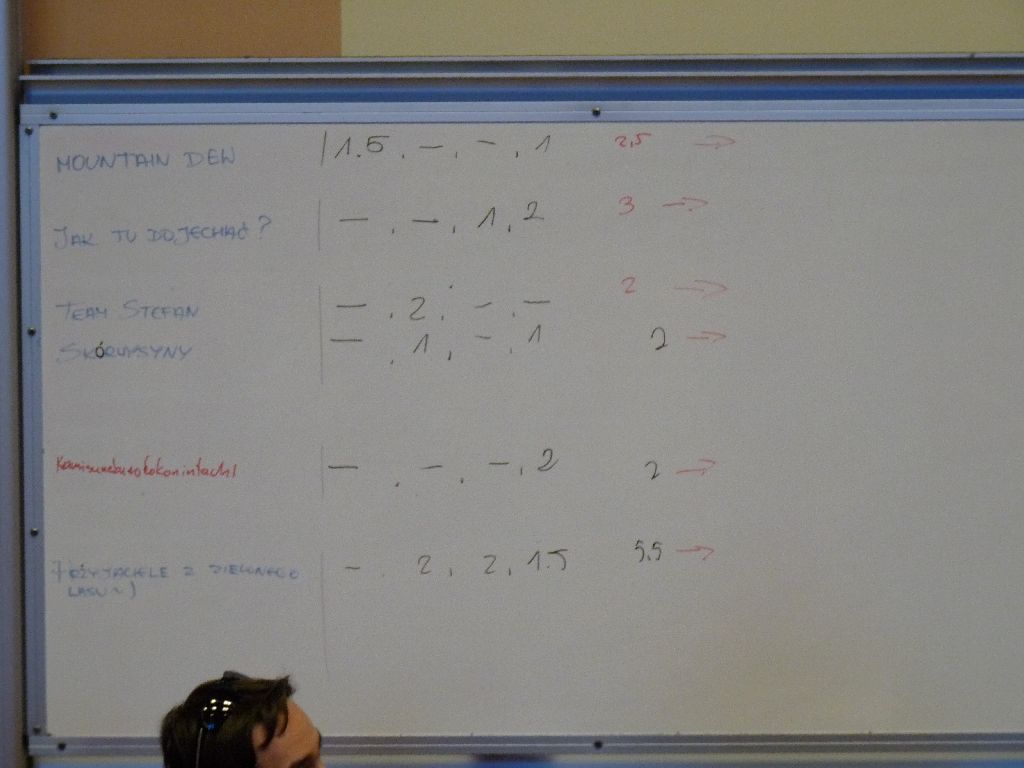 MOUNTAIN DEW | 1.5 , – , – , 1 2,5 →
JAK TU DOJECHAĆ? | – , – , 1 , 2 3 →
TEAM STEFAN | – , 2 , – , – 2 →
SKÓRWYSYNY | – , 1 , – , 1 2 →
– , – , – , 2 2 →
PRZYJACIELE Z ZIELONEGO | – , 2 , 2 , 1.5 5,5 →
LASU ~)